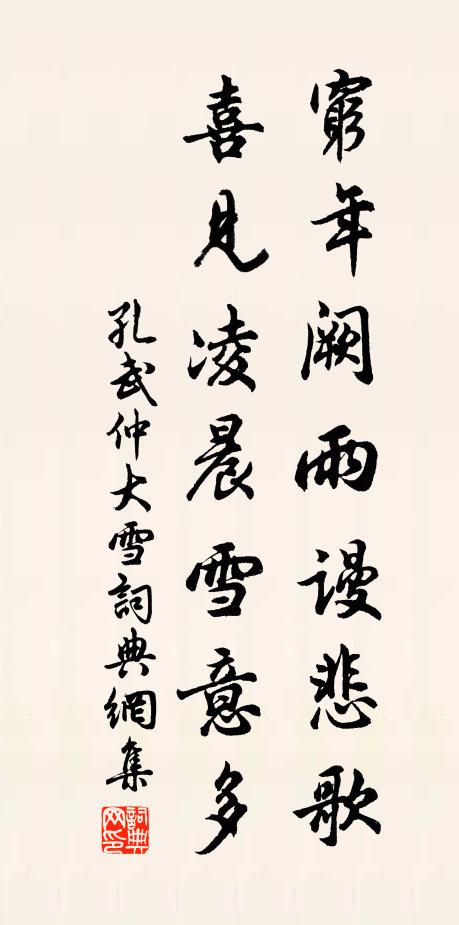 窮年闕雨謾悲歌
喜見凌晨雪意多
孔武仲大雪詞典網集
詞典網印